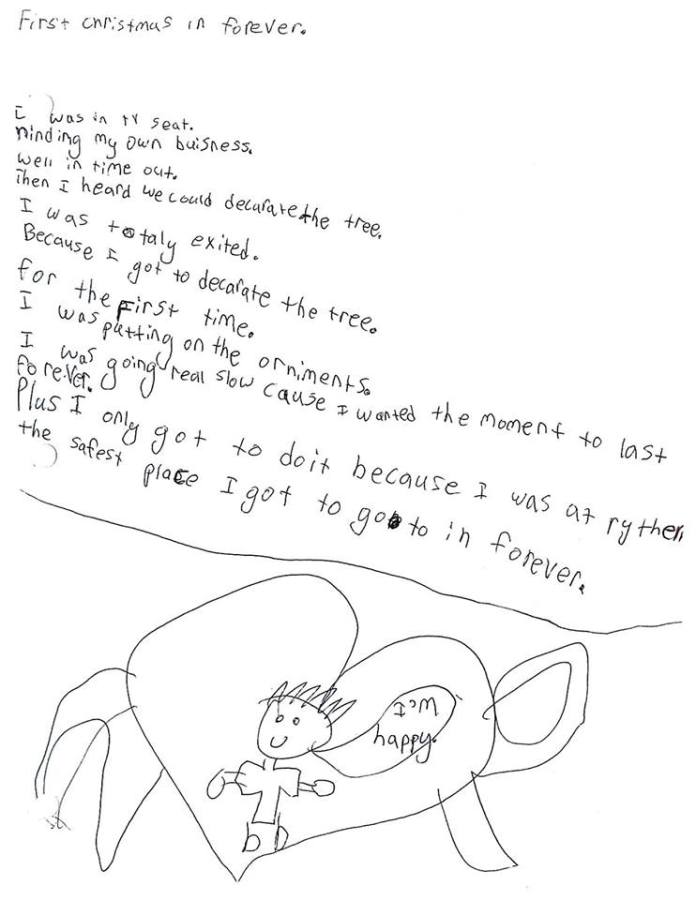 First christmas in forever.
I was in tv seat.
minding my own buisness.
well in time out.
Then I heard we could decarate the tree.
I was totaly exited.
Because I got to decarate the tree.
for the First time.
I was putting on the orniments.
I was going real slow cause I wanted the moment to last
forever.
Plus I only got to do it because I was at ryther,
the safest place I got to go to in forever.
I'M
happy.